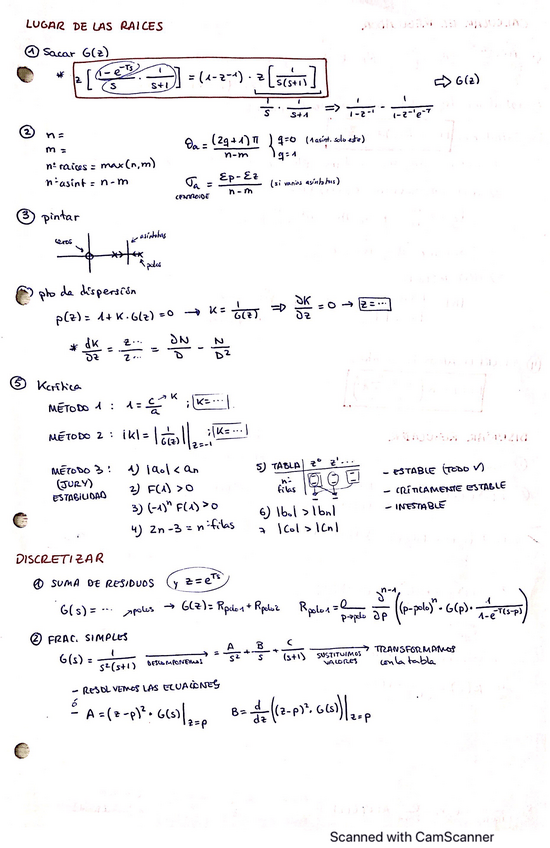 LUGAR DE LAS RAICES
① Sacar G(z)
* z[ (1-e^-Ts)/s · 1/(s+1) ] = (1-z^-1) · z[ 1/(s(s+1)) ] ⇒ G(z)
1/s · 1/(s+1) ⇒ 1/(1-z^-1) - 1/(1-z^-1e^-T)
② n=
m=
nº raices = max(n,m)
nº asint = n-m
θa = (2q+1)π/(n-m) { q=0 (1 asint. solo este) q=1
σa = (Σp-Σz)/(n-m) (si varias asíntotas)
CENTROIDE
③ pintar
ceros
asíntotas
polos
pto de dispersión
p(z) = 1+K·G(z)=0 → K = 1/G(z) ⇒ ∂K/∂z = 0 → z=...
* dK/∂z = z.../z... = ∂N/D - N/D²
⑤ Kcrítica
MÉTODO 1: 1 = c/a →K ; K=...
MÉTODO 2: |K| = |1/G(z)| |z=-1 ; K=...
MÉTODO 3: (JURY) ESTABILIDAD
1) |a0| < an
2) F(1) > 0
3) (-1)^n F(1) > 0
4) 2n-3 = nº filas
5) TABLA z^0 z^1 ...
nº filas
6) |b0| > |bn|
7 |C0| > |Cn|
- ESTABLE (TODO V)
- CRÍTICAMENTE ESTABLE
- INESTABLE
DISCRETIZAR
① SUMA DE RESIDUOS (y z=e^Ts)
G(s) = ... polos → G(z) = Rpolo1 + Rpolo2 Rpolo1 = p→polo ∂^n-1/∂p ((p-polo)^n · G(p) · 1/(1-e^-T(s-p)))
② FRAC. SIMPLES
G(s) = 1/(s²(s+1)) DESCOMPONEMOS → = A/s² + B/s + C/(s+1) SUSTITUIMOS VALORES → TRANSFORMAMOS con la tabla
- RESOLVEMOS LAS ECUACIONES
ó
- A = (z-p)² · G(s)|z=p B = d/dz ((z-p)² · G(s))|z=p
Scanned with CamScanner